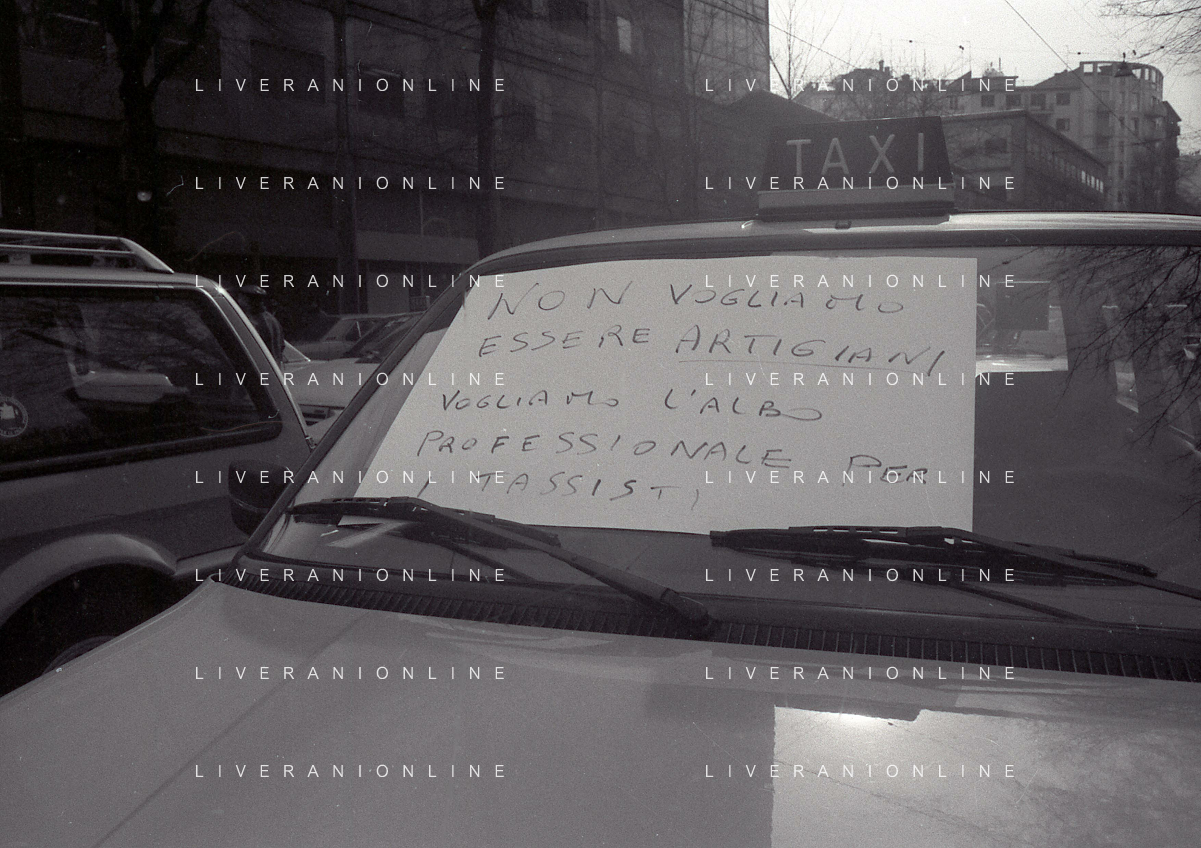 LIVERANIONLINE LIVERANIONLINE
TAXI
LIVERANIONLINE LIVERANIONLINE
LIVERANIONLINE LIVERANIONLINE
NON VOGLIAMO
ESSERE ARTIGIANI
LIVERANIONLINE LIVERANIONLINE
VOGLIAMO L'ALBO
PROFESSIONALE PER
LIVERANIONLINE LIVERANIONLINE
I TASSISTI
LIVERANIONLINE LIVERANIONLINE
LIVERANIONLINE LIVERANIONLINE
LIVERANIONLINE LIVERANIONLINE